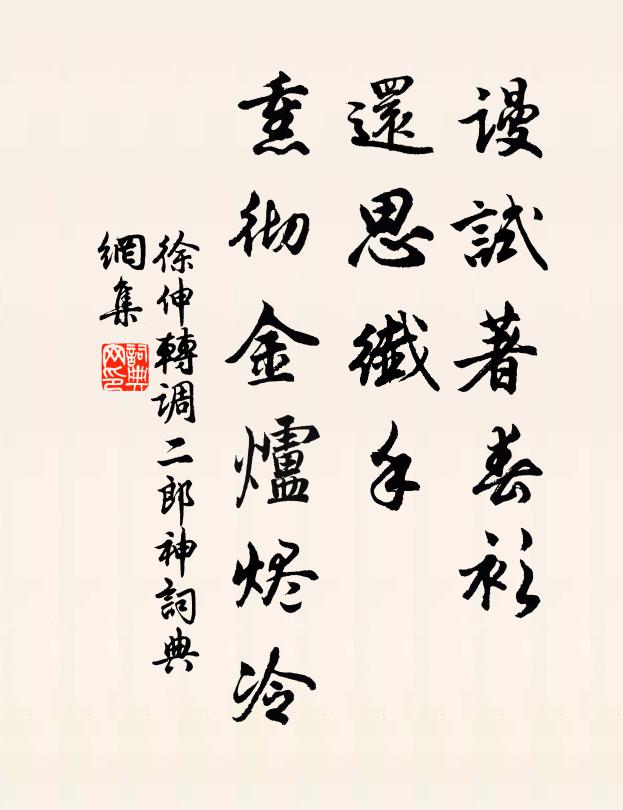 謾試著春衫
還思纖手
熏彻金爐烬冷
徐伸轉調二郎神詞典
網集
詞典
网印